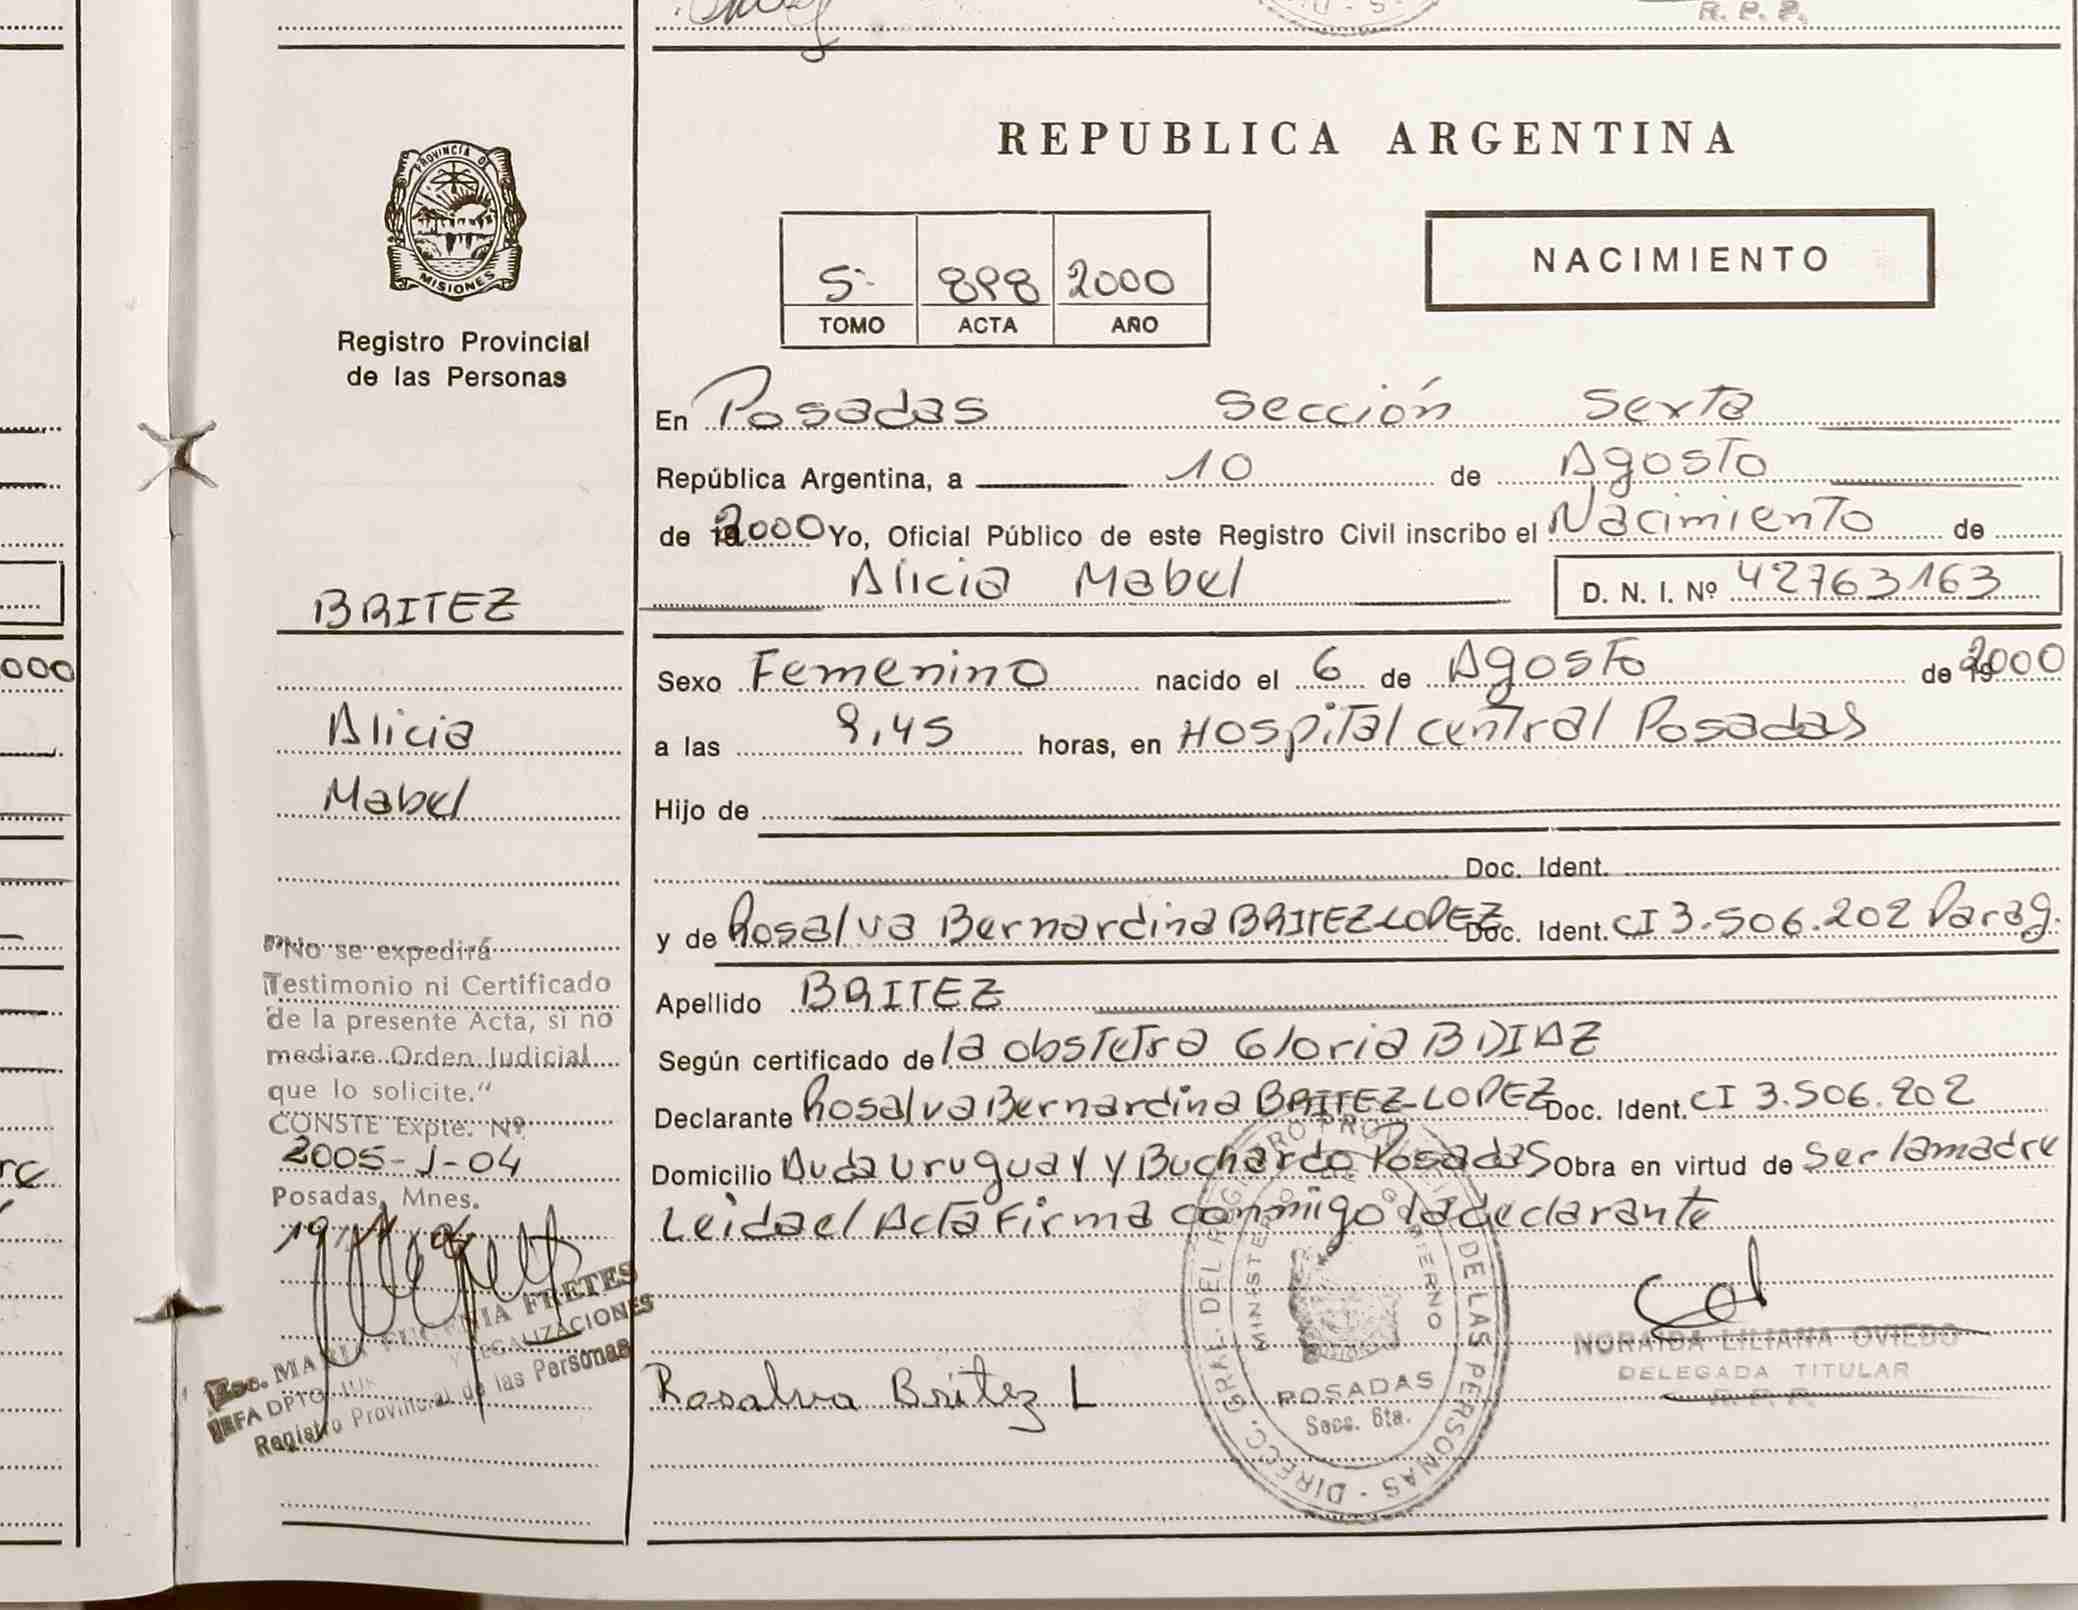 R. P. P.
PROVINCIA DE
MISIONES
Registro Provincial
de las Personas
BRITEZ
Alicia
Mabel
"No se expedirá
Testimonio ni Certificado
de la presente Acta, si no
mediare Orden Judicial
que lo solicite."
CONSTE Expte. Nº
2005-J-04
Posadas, Mnes.
Esc. MARIA FRETES
JEFA DPTO. Y LEGALIZACIONES
Registro Provincial de las Personas
REPUBLICA ARGENTINA
5- 898 2000
TOMO ACTA AÑO
NACIMIENTO
En Posadas Sección Sexta
República Argentina, a 10 de Agosto
de 2000 Yo, Oficial Público de este Registro Civil inscribo el Nacimiento de
Alicia Mabel D. N. I. Nº 42763163
Sexo Femenino nacido el 6 de Agosto de 2000
a las 9,45 horas, en Hospital central Posadas
Hijo de
Doc. Ident.
y de Rosalva Bernardina BRITEZ LOPEZ Doc. Ident. CI 3.506.202 Parag.
Apellido BRITEZ
Según certificado de la obstetra Gloria B DIAZ
Declarante Rosalva Bernardina BRITEZ LOPEZ Doc. Ident. CI 3.506.202
Domicilio Avda Uruguay y Buchardo Posadas Obra en virtud de Ser la madre
Leida el Acta Firma conmigo la declarante
DIRECC. GRAL. DEL REGISTRO PROVINCIAL DE LAS PERSONAS
MINISTERIO DE GOBIERNO
POSADAS
Secc. 6ta.
NORAIDA LILIANA OVIEDO
DELEGADA TITULAR
R. P. P.
Rosalva Britez L